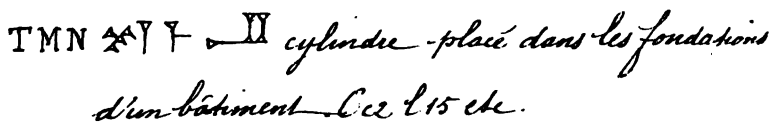 TMN cylindre placé dans les fondations
d'un bâtiment. C c2 l 15 etc.